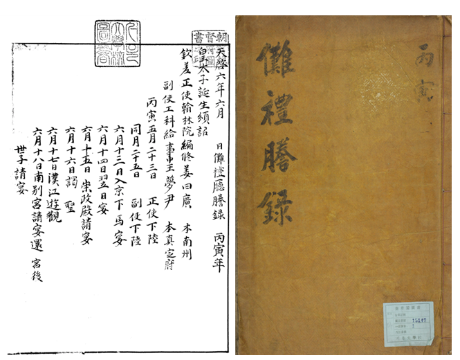 丙寅
儺禮謄錄
天啓六年六月 日儺禮廳謄錄 丙寅年
皇太子誕生頒詔
欽差正使翰林院編修姜曰廣 本南州
副使工科給事中王夢尹 本真定府
丙寅五月二十三日 正使下陸
同月二十五日 副使下陸
六月十三日入京下馬宴
六月十四日翌日宴
六月十五日崇政殿請宴
六月十六日謁 聖
六月十七日漢江遊觀
六月十八日南別宮請宴還 宮後
世子請宴